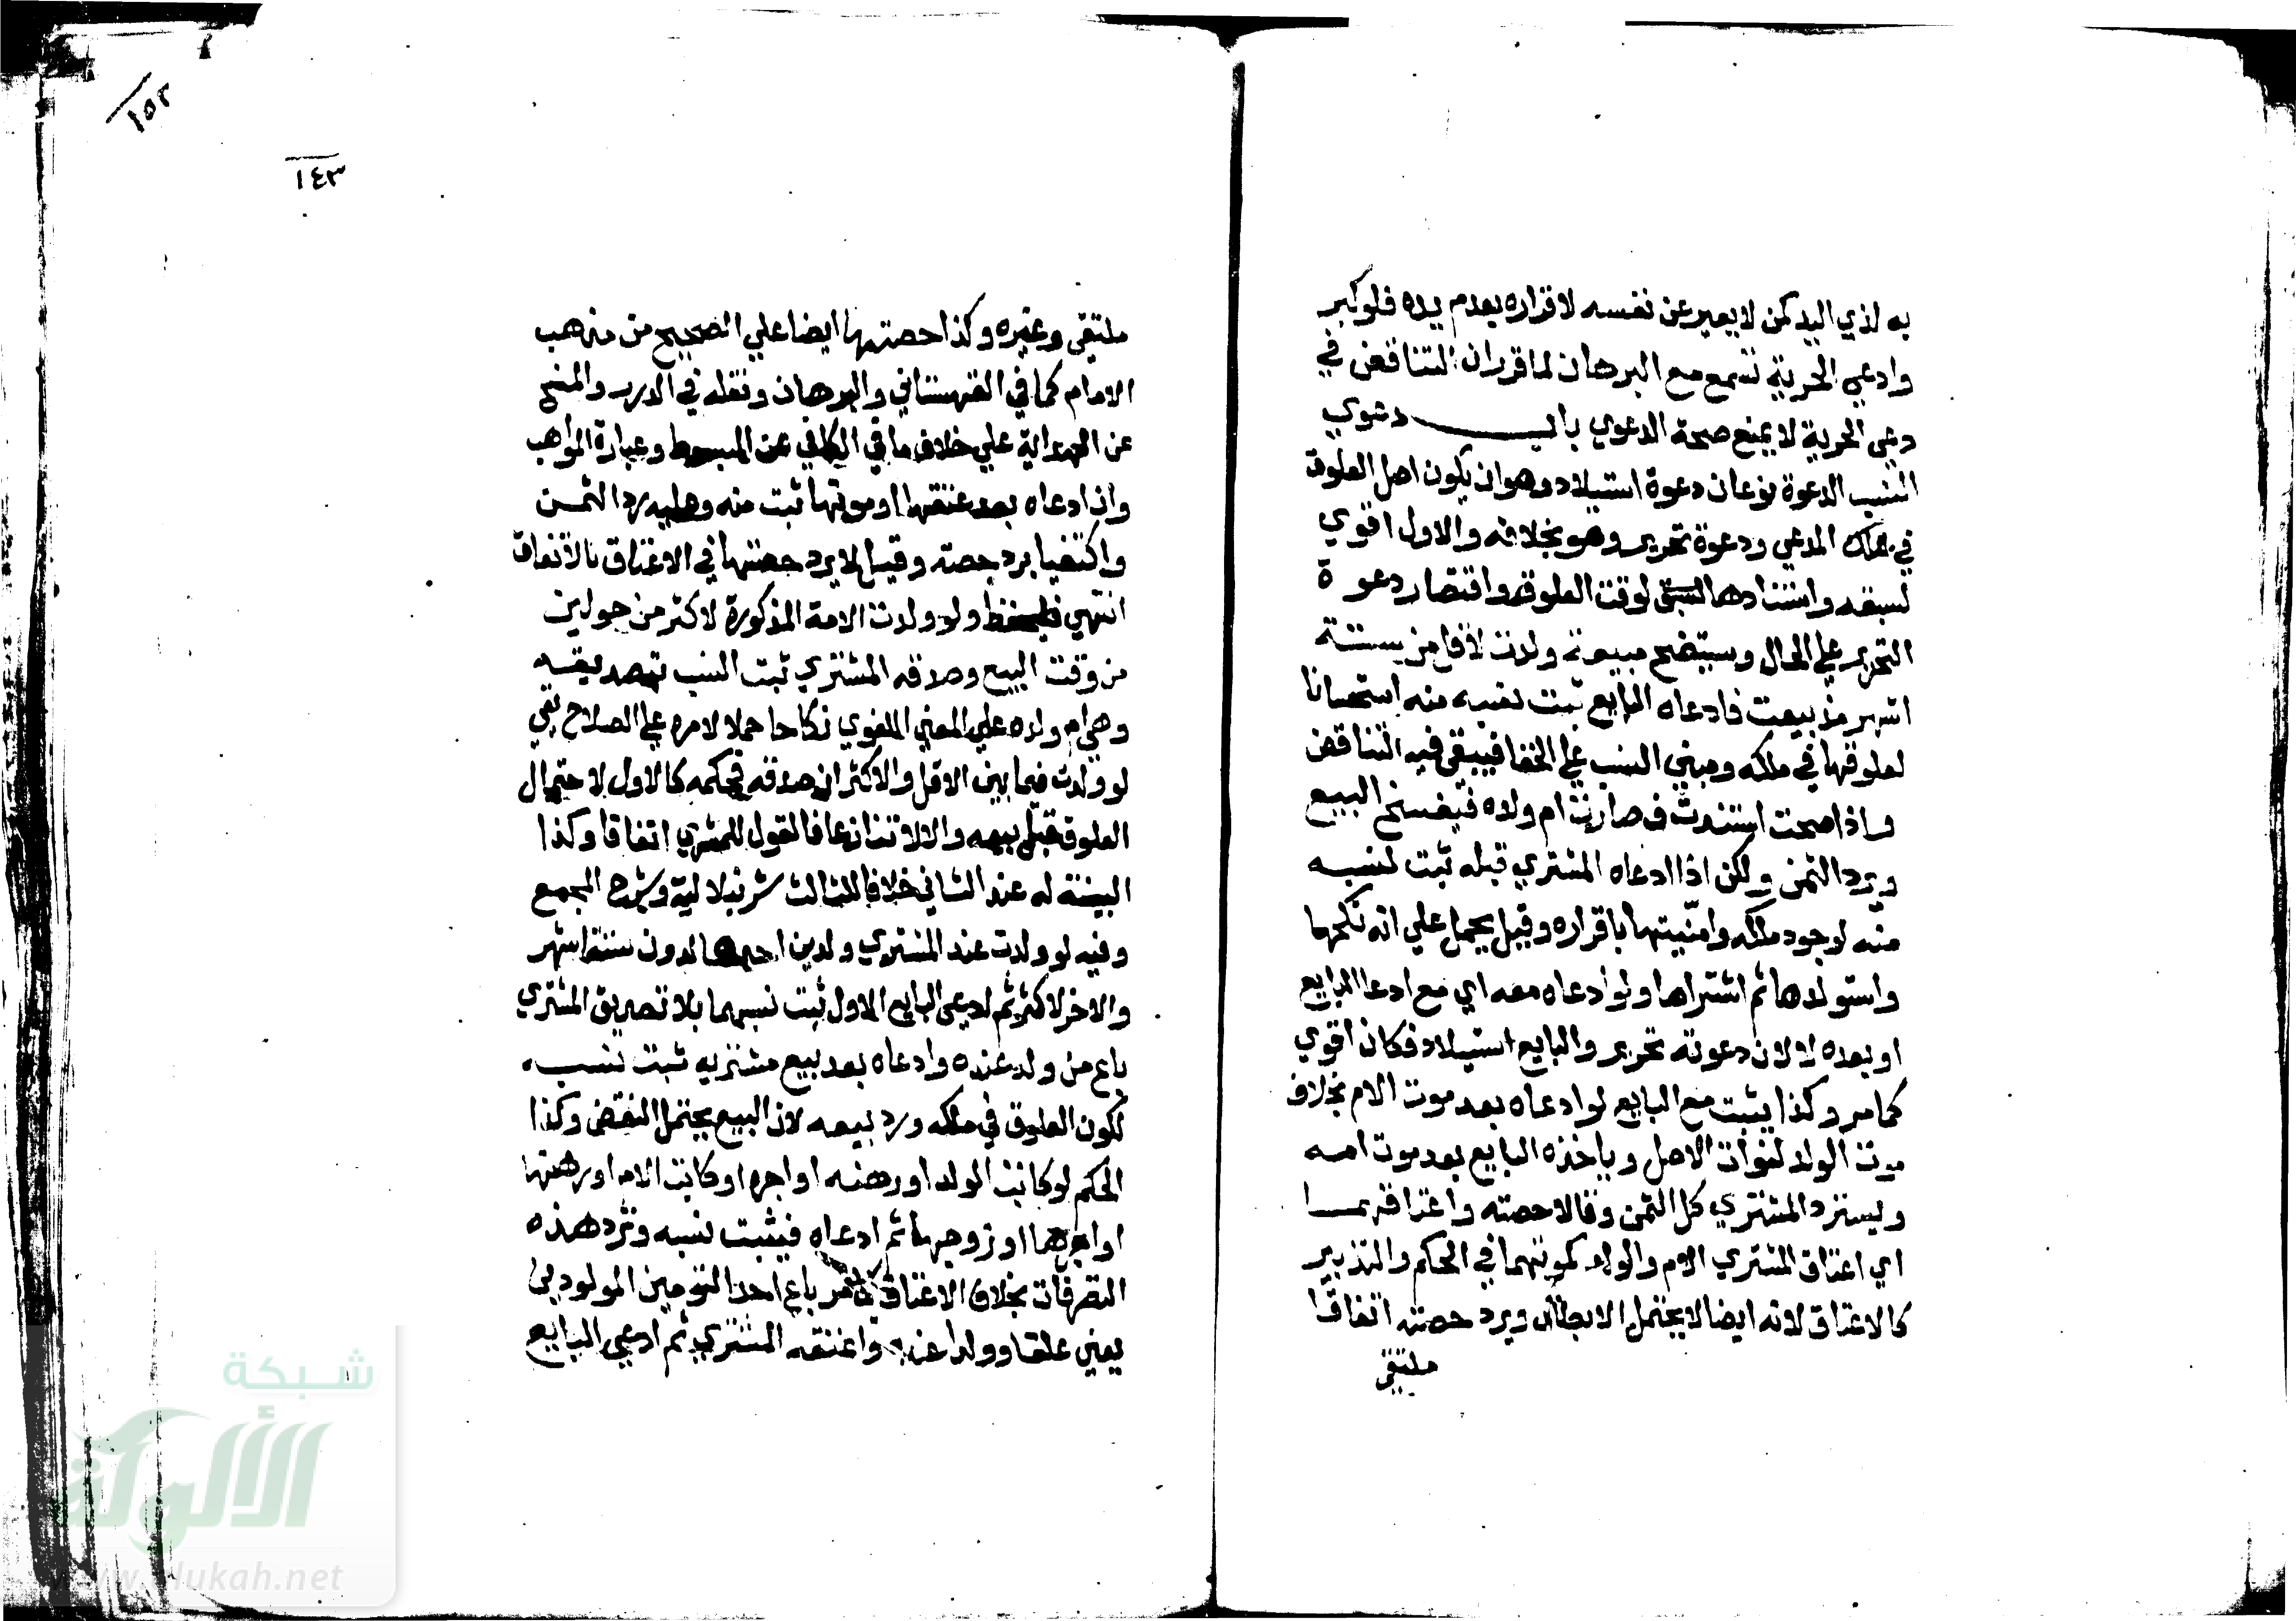 به لذي اليد كمن لا يعبر عن نفسه لاقراره بعدم يده فلو كبر
وادعي الحرية تسمع مع البرهان لما قرر ان التناقض في
دعوى الحرية لا يمنع صحة الدعوي باب دعوي
النسب الدعوة نوعان دعوة استيلاد وهو ان يكون اصل العلوق
في ملك المدعي ودعوة تحرير وهو بخلافه والاول اقوي
لسبقه واستنادها لوقت العلوق واقتصار دعوة
التحرير علي الحال وسيتضح مبيعة ولدت لاقل من ستة
اشهر مذ بيعت فادعاه البايع ثبت نسبه منه استحسانا
لعلوقها في ملكه ومبني النسب علي الخفا فيبقى فيه التناقض
واذا صحت استندت فصارت ام ولده فيفسخ البيع
ويرد الثمن ولكن اذا ادعاه المشتري قبله ثبت نسبه
منه لوجود ملكه وامّيّتها باقراره وقيل يحمل علي انه نكحها
واستولدها ثم اشتراها ولو ادعاه معه اي مع ادعا البايع
او بعده لا لان دعوته تحرير والبايع استيلاد فكان اقوي
كما مر وكذا يثبت مع البايع لو ادعاه بعد موت الام بخلاف
موت الولد لفوات الاصل وياخذه البايع بعد موت امه
ويسترد المشتري كل الثمن وقالا حصته واعتاقهما
اي اعتاق المشتري الام والولد كموتهما في الحكم والتدبير
كالاعتاق لانه ايضا لا يحتمل الابطال ويرد حصته اتفاقا
ملتقى
١٥٢
١٤٣
ملتقى وغيره وكذا حصتها ايضا علي الصحيح من مذهب
الامام كما في القهستاني والبرهان ونقله في الدرر والمنح
عن الهداية علي خلاف ما في الكافي عن المبسوط وعبارة المواهب
وان ادعاه بعد عتقها او موتها ثبت منه وعليه رد الثمن
واكتفيا برد حصته وقيل لا يرد حصتها في الاعتاق بالاتفاق
انتهي فليحفظ ولو ولدت الامة المذكورة لاكثر من حولين
من وقت البيع وصدقه المشتري ثبت النسب بتصديقه
وهي ام ولده علي المعني اللغوي نكاحا حملا لامره علي الصلاح بقي
لو ولدت فيما بين الاقل والاكثر ان صدقه فحكمه كالاول لاحتمال
العلوق قبل بيعه والا لا ولو تنازعا فالقول للمشتري اتفاقا وكذا
البينة له عند الثاني خلافا للثالث شرنبلالية وشرح المجمع
وفيه لو ولدت عند المشتري ولدين احدهما لدون ستة اشهر
والاخر لاكثر ثم ادعي البايع الاول ثبت نسبهما بلا تصديق المشتري
باع من ولد عنده وادعاه بعد بيع مشتريه ثبت نسبه
لكون العلوق في ملكه ورد بيعه لان البيع يحتمل النقض وكذا
الحكم لو كاتب الولد او رهنه او اجره او كاتب الام او رهنها
او اجرها او زوجها ثم ادعاه فيثبت نسبه وترد هذه
التصرفات بخلاف الاعتاق كما مر باع احد التوءمين المولودين
يعني علقا وولدا عنده واعتقه المشتري ثم ادعي البايع
شبكة
الألوكة
www.alukah.net